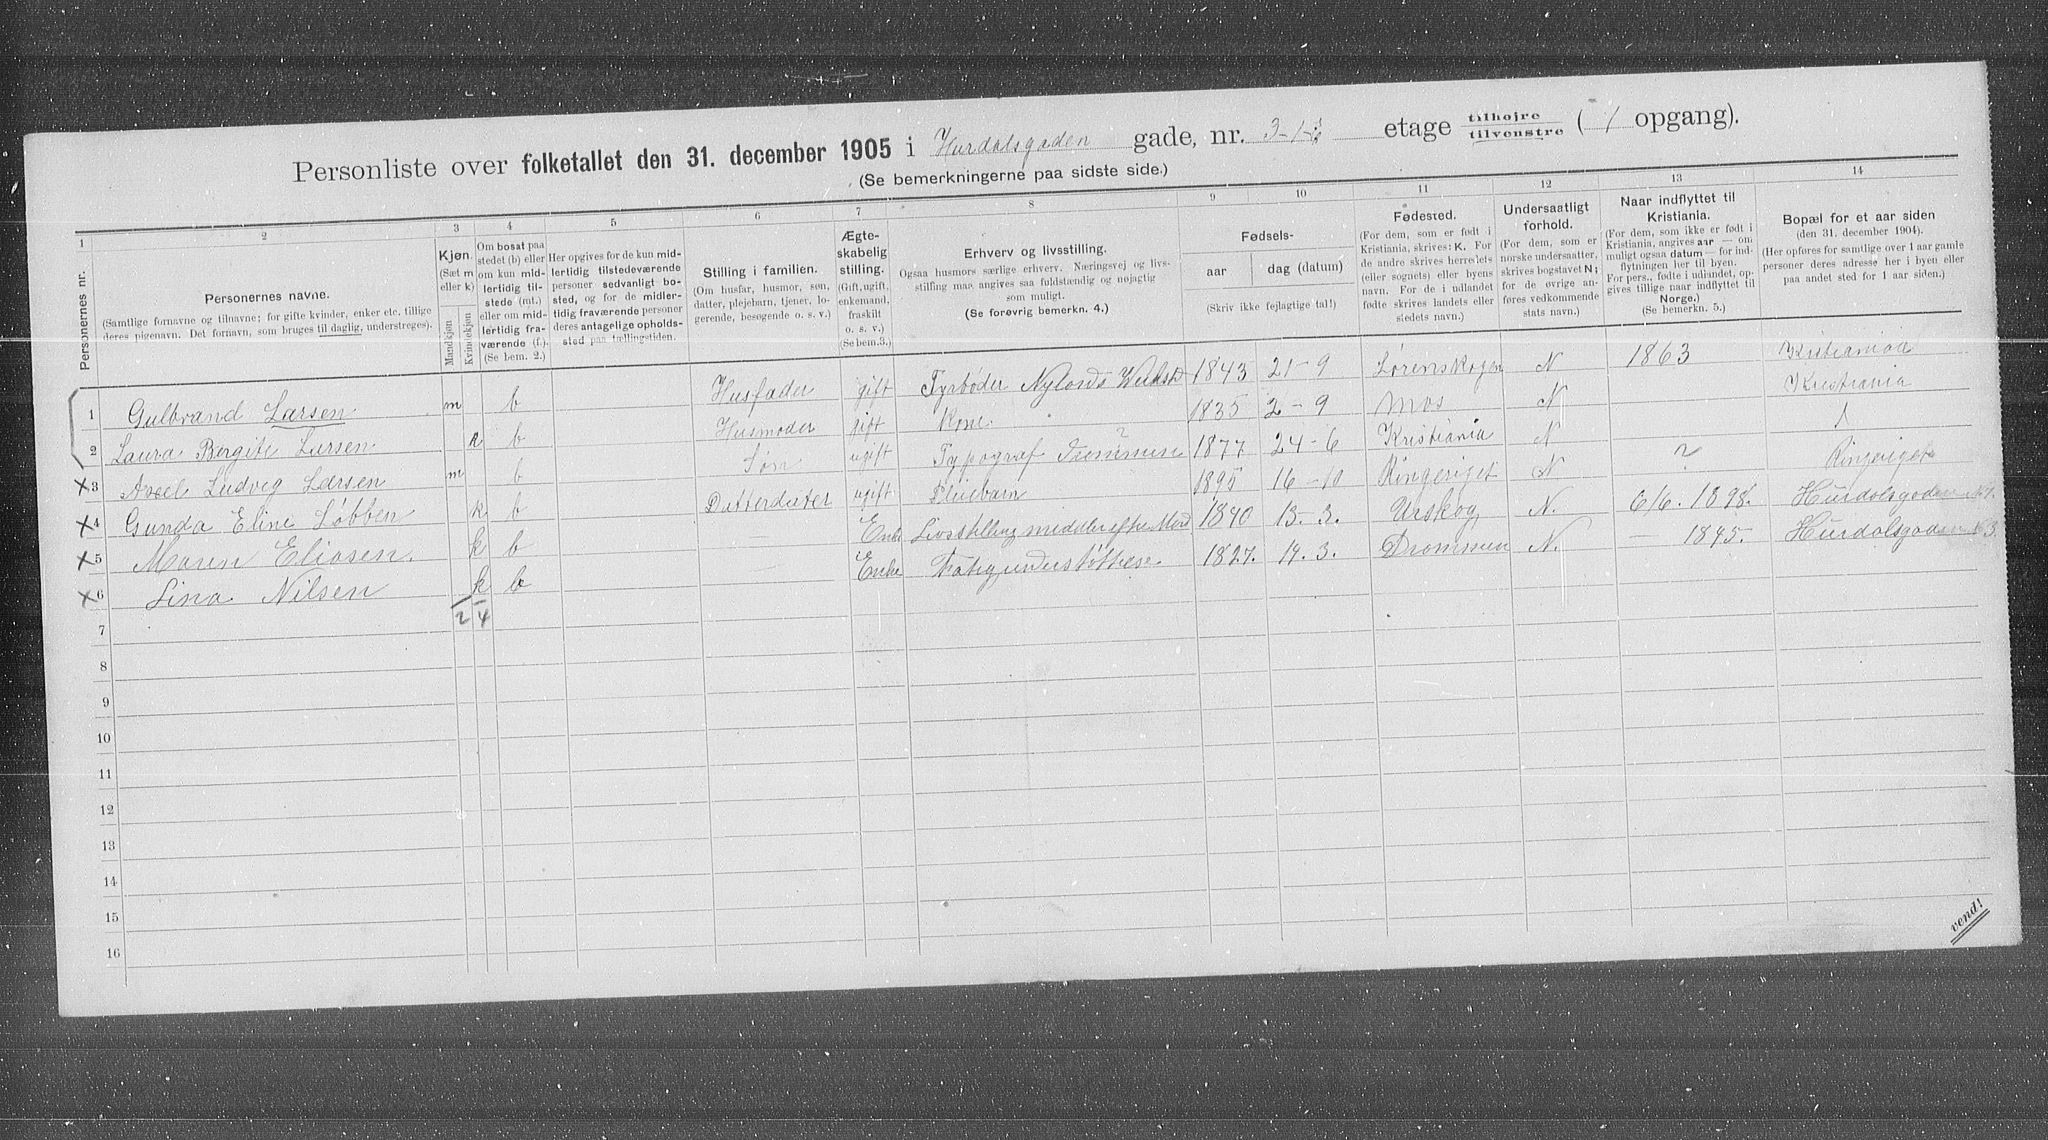 Personliste over folketallet den 31. december 1905 i Hurdalsgaden gade, nr. 3 etage tilhøjre tilvenstre ( 1 opgang).
(Se bemerkningerne paa sidste side.)
1 2 3 4 5 6 7 8 9 10 11 12 13 14
Personernes nr.
Personernes navne.
(Samtlige fornavne og tilnavne; for gifte kvinder, enker etc. tillige
deres pigenavn. Det fornavn, som bruges til daglig, understreges).
Kjøn.
(Sæt m
eller k)
Mandkjøn
Kvindekjøn
Om bosat paa
stedet (b) eller
om kun mid-
lertidig til-
stede (mt.)
eller om mid-
lertidig fra-
værende (f.).
(Se bem. 2.)
Her opgives for de kun mid-
lertidig tilstedeværende
personer sedvanligt bo-
sted, og for de midler-
tidig fraværende personer
deres antagelige opholds-
sted paa tællingstiden.
Stilling i familien.
(Om husfar, husmor, søn,
datter, plejebarn, tjener, lo-
gerende, besøgende o. s. v.)
Ægte-
skabelig
stilling.
(Gift, ugift,
enkemand,
fraskilt
o. s. v.)
(Se bem.3.)
Erhverv og livsstilling.
Ogsaa husmors særlige erhverv. Næringsvej og livs-
stilling maa angives saa fuldstændig og nøjagtig
som muligt.
(Se forøvrig bemerkn. 4.)
Fødsels-
aar
dag (datum)
(Skriv ikke fejlagtige tal!)
Fødested.
(For dem, som er født i
Kristiania, skrives: K. For
de andre skrives herredets
(eller sognets) eller byens
navn. For de i udlandet
fødte skrives landets eller
stedets navn.)
Undersaatligt
forhold.
(For dem, som er
norske undersaatter,
skrives bogstavet N;
for de øvrige an-
føres vedkommende
stats navn.)
Naar indflyttet til
Kristiania.
(For dem, som ikke er født i
Kristiania, angives aar — om
muligt ogsaa datum — for ind-
flytningen her til byen.
For pers., fødte i udlandet, op-
gives tillige naar indflyttet til
Norge.)
(Se bemerkn. 5.)
Bopæl for et aar siden
(den 31. december 1904).
(Her opføres for samtlige over 1 aar gamle
personer deres adresse her i byen eller
paa andet sted for 1 aar siden.)
1 Gulbrand Larsen m b Husfader gift Fyrbøder Nylands 1843 21-9 Lørenskogen N 1863 Kristiania
2 Laura Bergite Larsen k b Husmoder gift Kone 1835 2-9 Mos N Kristiania
x 3 Axel Ludvig Larsen m b Søn ugift Typograf ? 1877 24-6 Kristiania N
x 4 Gunda Eline Løbben k b Datterdatter ugift Pliebarn 1895 16-10 Ringeriget N ? Ringeriget
x 5 Maren Eliasen. k b — Enke Livsstilling midler efter Mand 1840 13.3. Urskog N. 6/6. 1898. Hurdalsgaden
x 6 Lina Nilsen k b — Enke Fatigunderstøttelse 1827. 19.3. Drammen N. — 1895. Hurdalsgaden 3
2 4
7
8
9
10
11
12
13
14
15
16
vend!